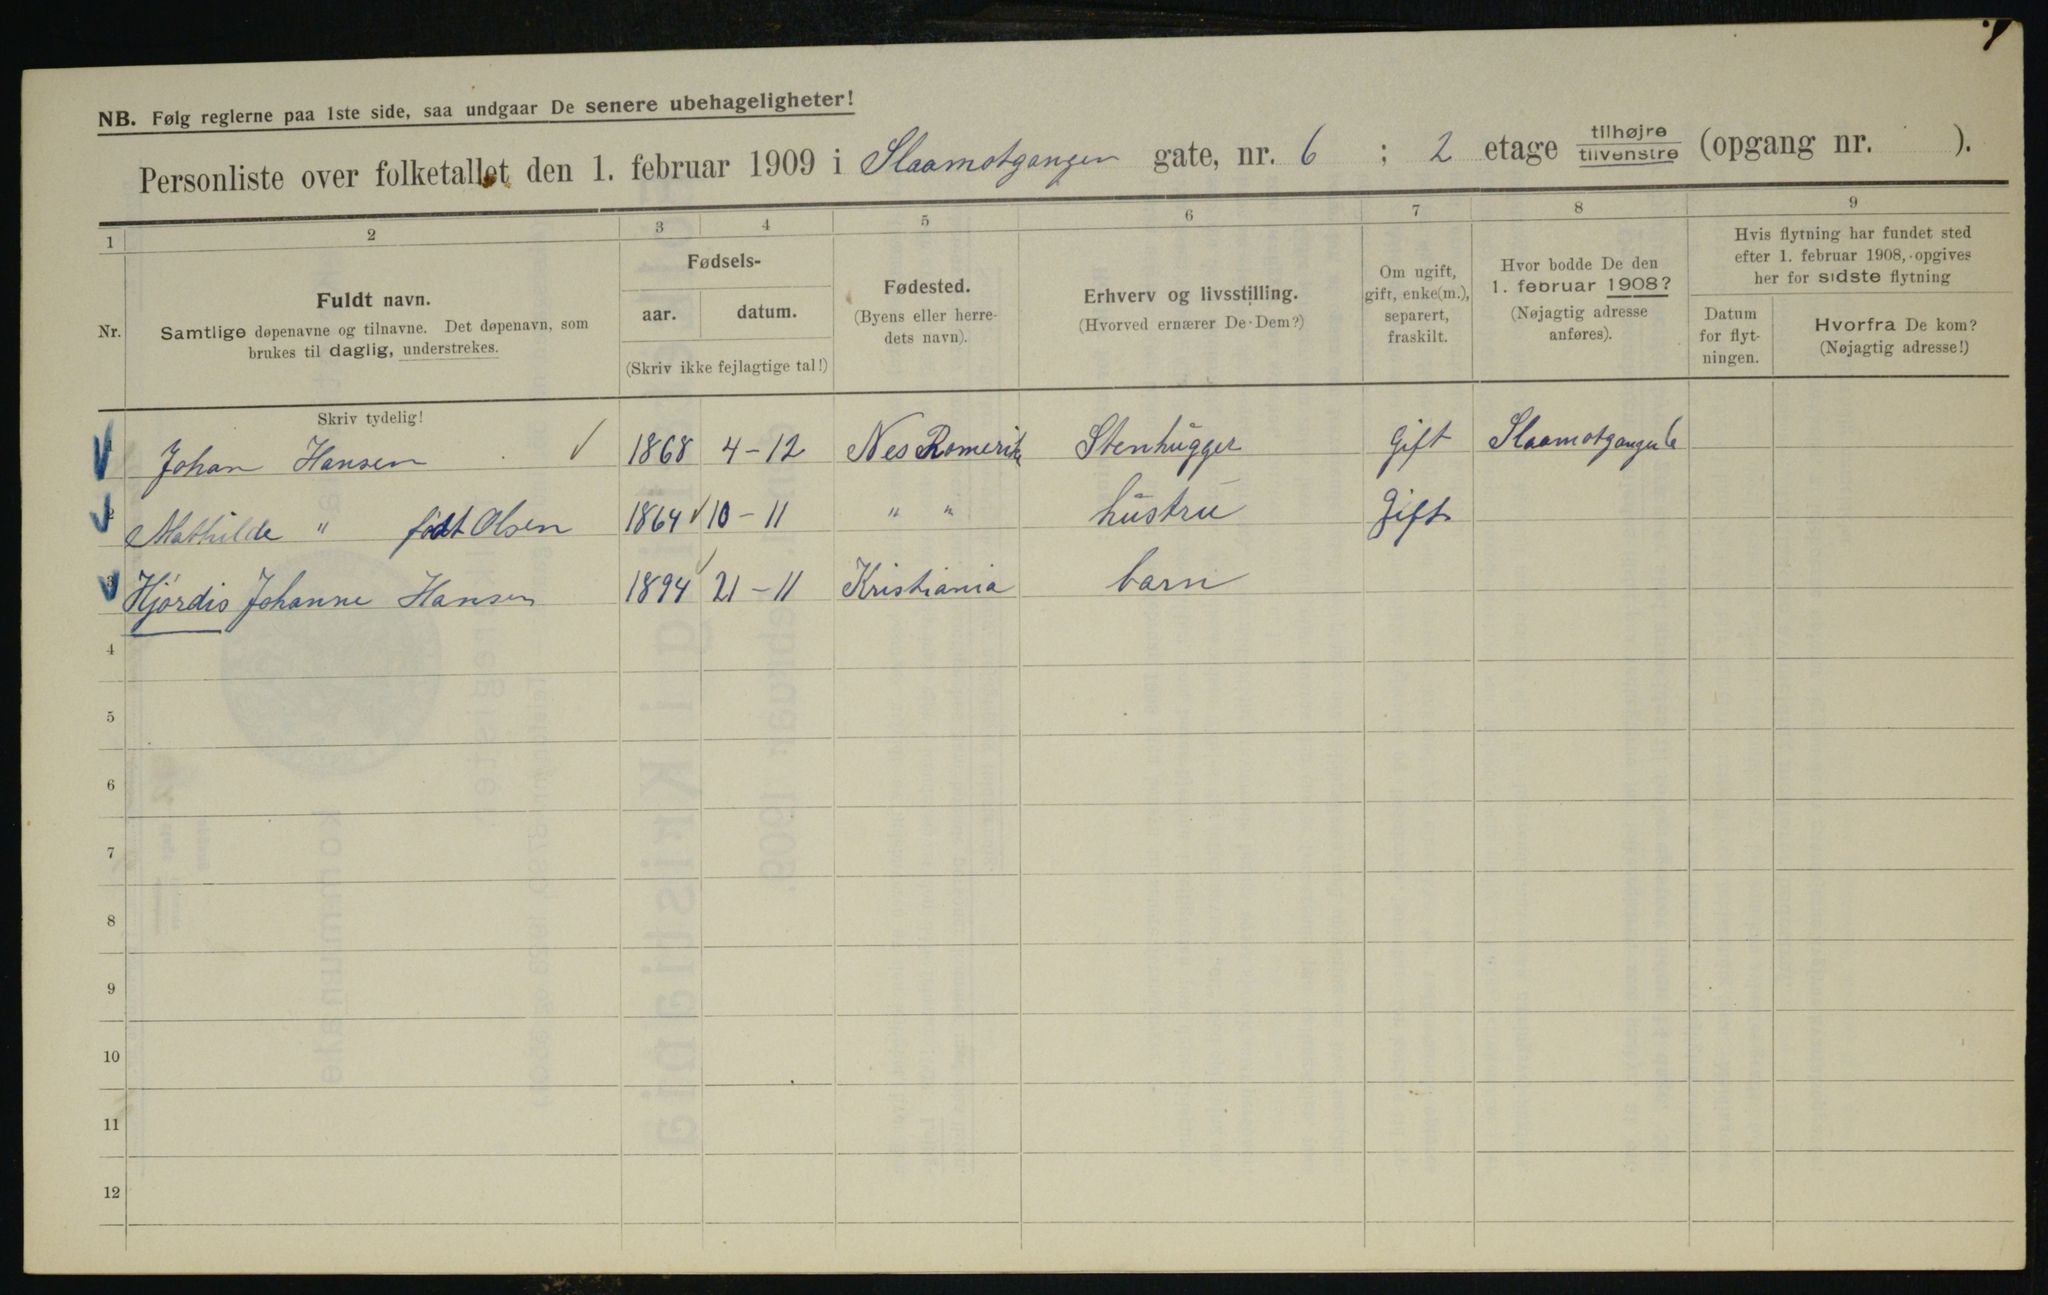 NB. Følg reglerne paa 1ste side, saa undgaar De senere ubehageligheter!
Personliste over folketallet den 1. februar 1909 i Slaamotgangen gate, nr. 6 ; 2 etage tilhøjre tilvenstre (opgang nr. ).
1 2 3 4 5 6 7 8 9
Nr.
Fuldt navn.
Samtlige døpenavne og tilnavne. Det døpenavn, som
brukes til daglig, understrekes.
Fødsels-
aar. datum.
(Skriv ikke fejlagtige tal!)
Fødested.
(Byens eller herre-
dets navn).
Erhverv og livsstilling.
(Hvorved ernærer De Dem?)
Om ugift,
gift, enke(m.),
separert,
fraskilt.
Hvor bodde De den
1. februar 1908?
(Nøjagtig adresse
anføres).
Hvis flytning har fundet sted
efter 1. februar 1908, opgives
her for sidste flytning
Datum
for flyt-
ningen.
Hvorfra De kom?
(Nøjagtig adresse!)
Skriv tydelig!
Johan Hansen 1868 4-12 Nes Romerike Stenhugger Gift Slaamotgangen 6
2 Mathilde " født Olsen 1864 10-11 " " hustru Gift
3 Hjørdis Johanne Hansen 1894 21-11 Kristiania barn
4
5
6
7
8
9
10
11
12